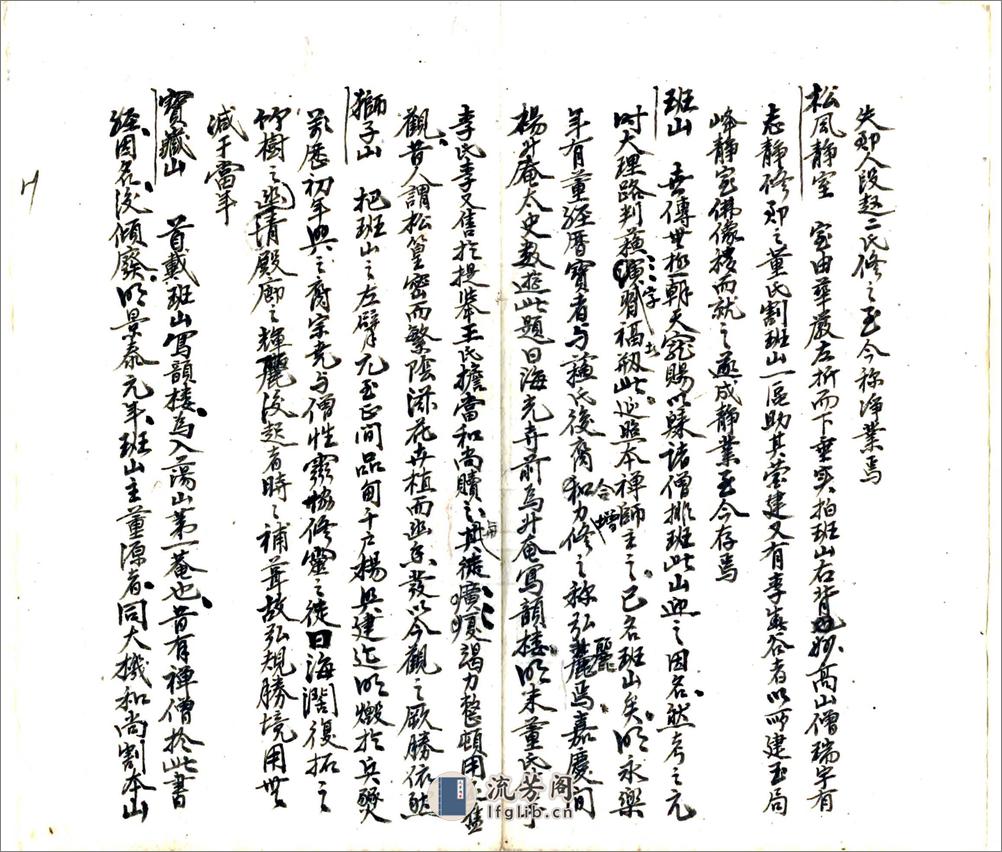 失郎人段趙二氏修之至今称净業焉
松風静室 室由華嚴左折而下垂実拍班山右背妙高山僧瑞宇有
志静修郡之董氏割班山一區助其营建又有李岳谷者以所建玉局
峰静室佛像移而就之遂成静業至今存焉
班山 世傳世極朝天寵賜以歸諸僧排班此山迎之因名然考之元
時大理路判蘓演習福刱此延照本禅師主之已名班山矣明永樂
年有董經曆寳者与蘓氏後裔和力修之称弘麗焉嘉慶間
楊升庵太史数遊此題曰海光寺前為升庵寫韻楼明末董氏
李氏李又售於提举王氏擔當和尚贖之其徒廣竭力整頓用
觀昔人謂松篁密而繁陰滋花卉植而幽香發以今觀之厥勝依然
獅子山 把班山之左臂元至正间品甸千户楊興建迄明燬於兵燹
萬曆初年興之裔宗尭与僧性靈協修靈之徒曰海潤復拓之
竹樹之幽清殿廊之輝麗後起者時之補葺故弘規勝境用世
减于當年
寳藏山 首戴班山寫韻楼為入蕩山第一菴也昔有禅僧於此書
經因名後傾廢明景泰元年班山主董源者同大機和尚割本山
流芳阁
lfglib.cn